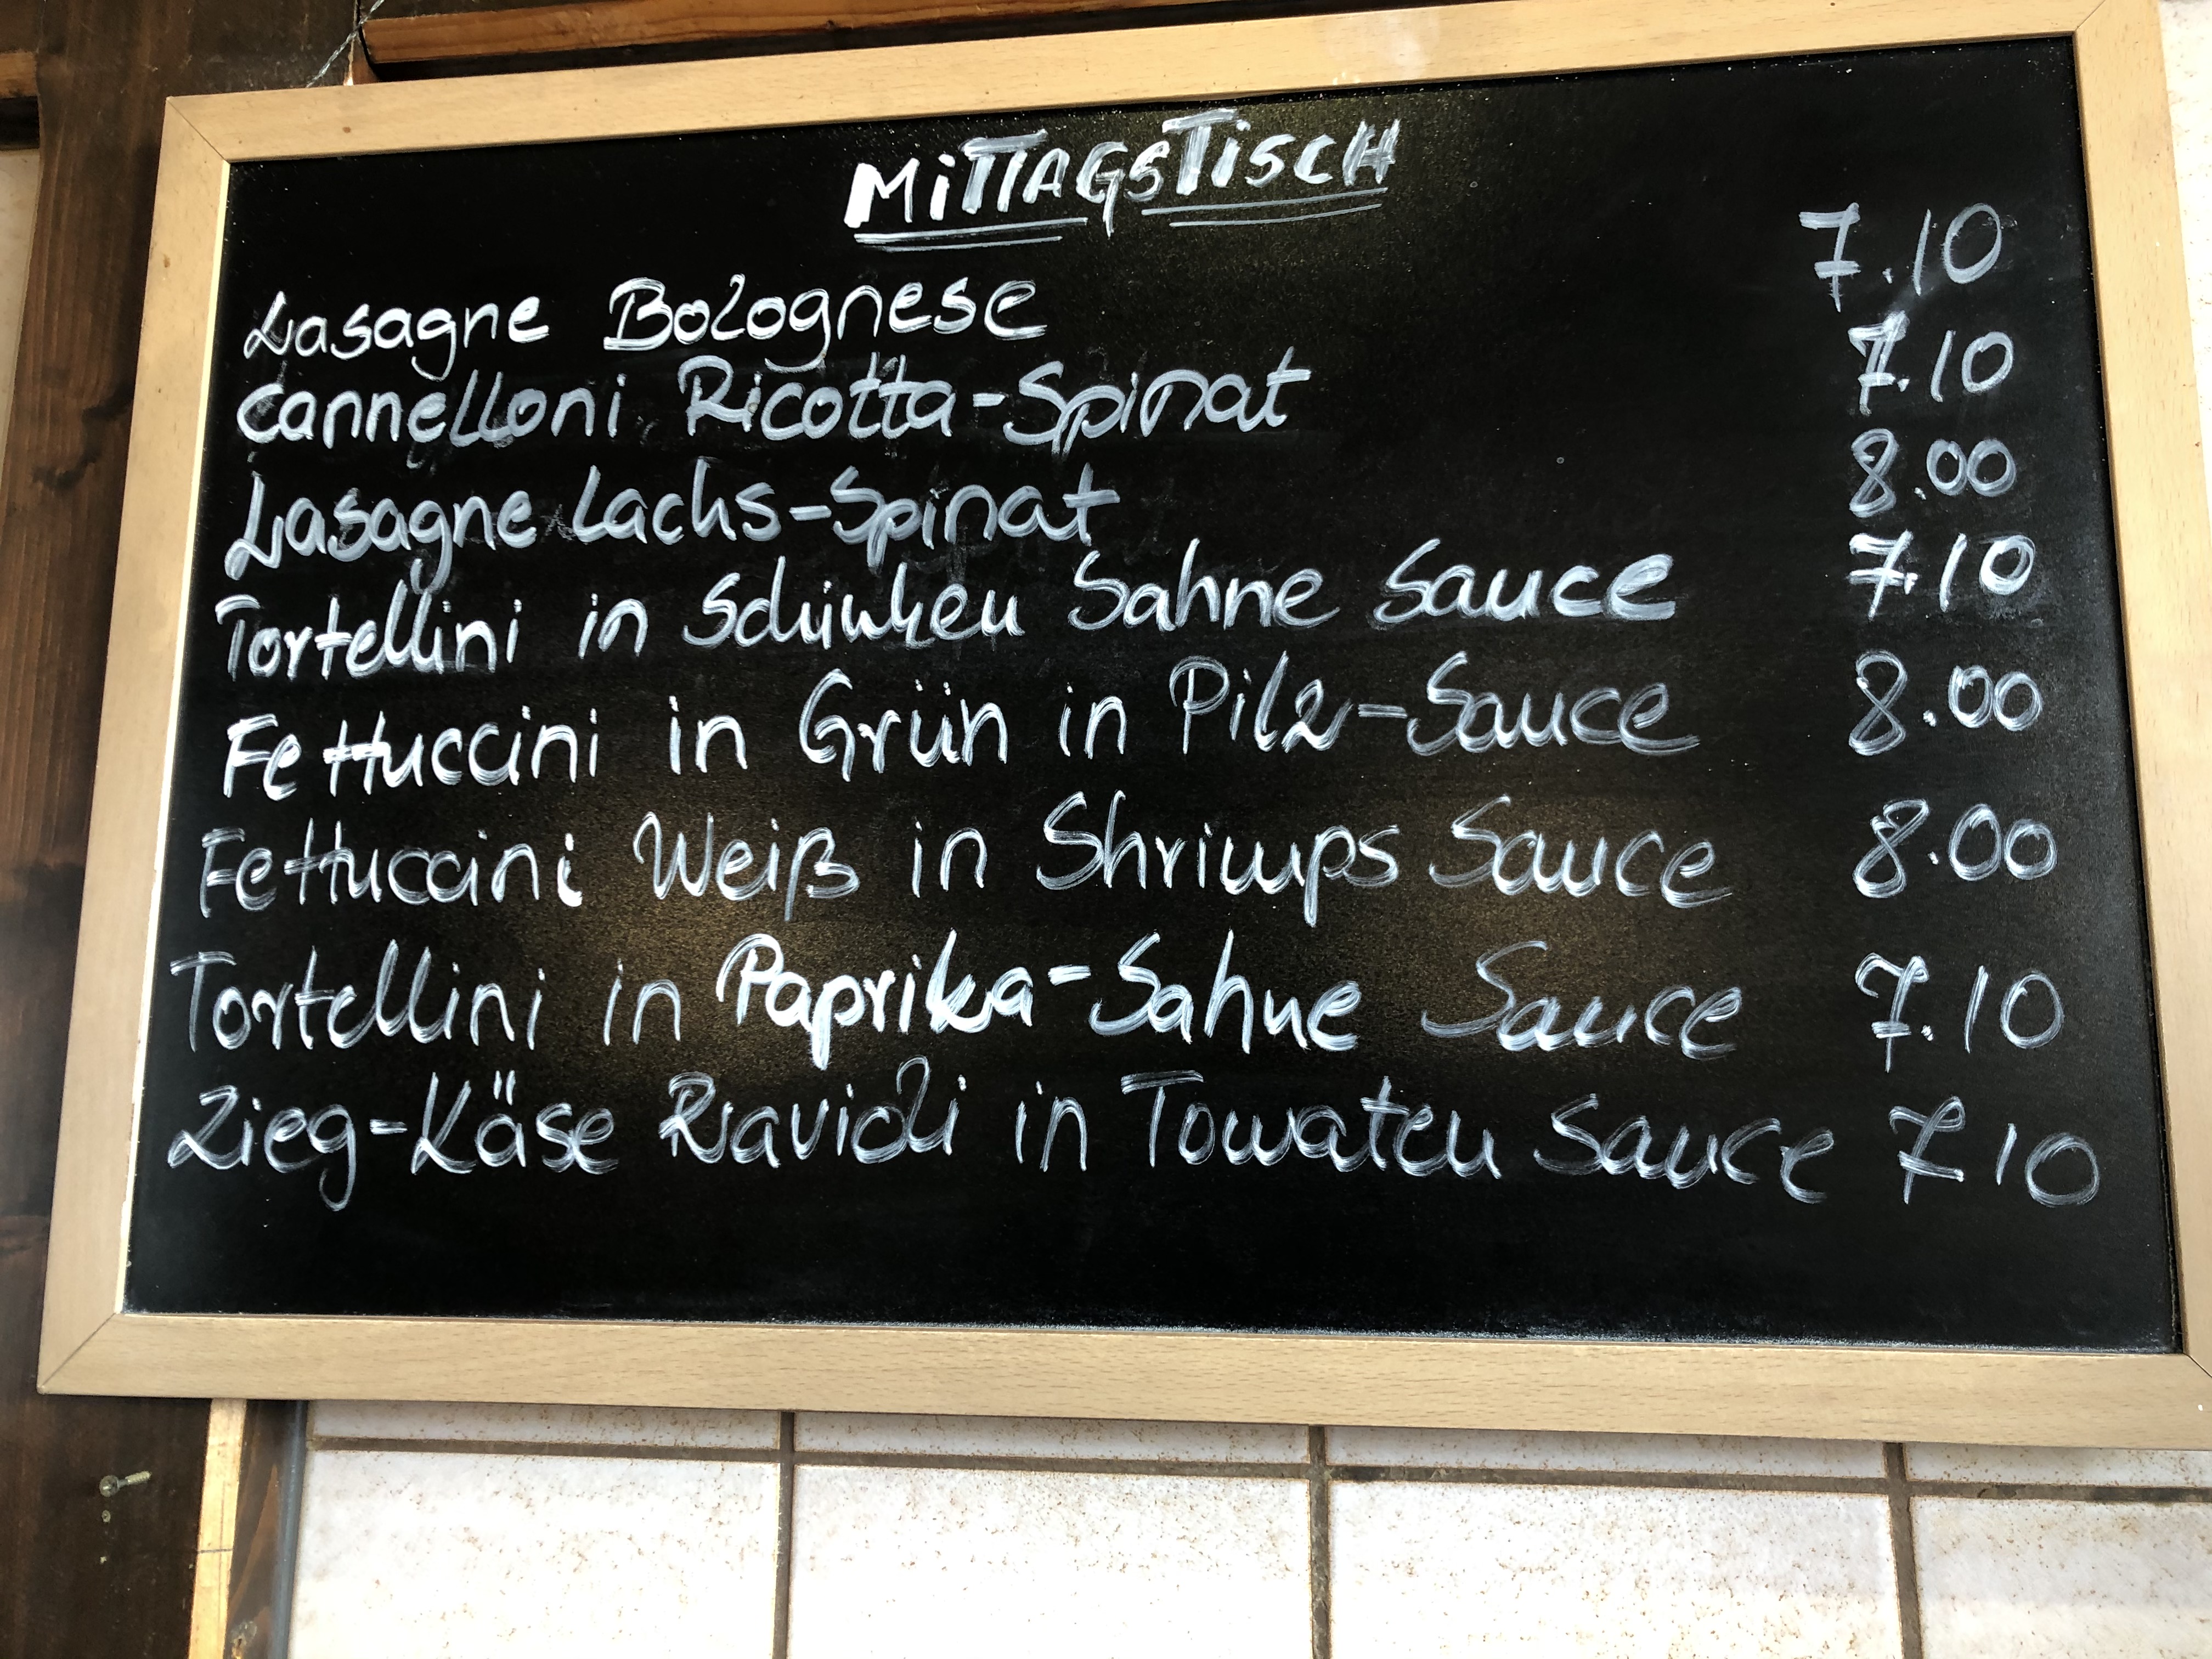 MiTTAGSTiSCH
Lasagne Bolognese 7.10
Cannelloni Ricotta-Spinat 7.10
Lasagne Lachs-Spinat 8.00
Tortellini in Schinken Sahne Sauce 7.10
Fettuccini in Grün in Pilz-Sauce 8.00
Fettuccini Weiß in Shrimps Sauce 8.00
Tortellini in Paprika-Sahne Sauce 7.10
Zieg-Käse Ravioli in Tomaten Sauce 7 10